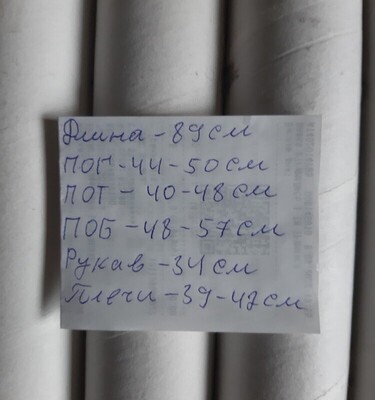 Длина - 89 см
ПОГ - 44 - 50 см
ПОТ - 40 - 48 см
ПОБ - 48 - 57 см
Рукав - 34 см
Плечи - 39 - 42 см